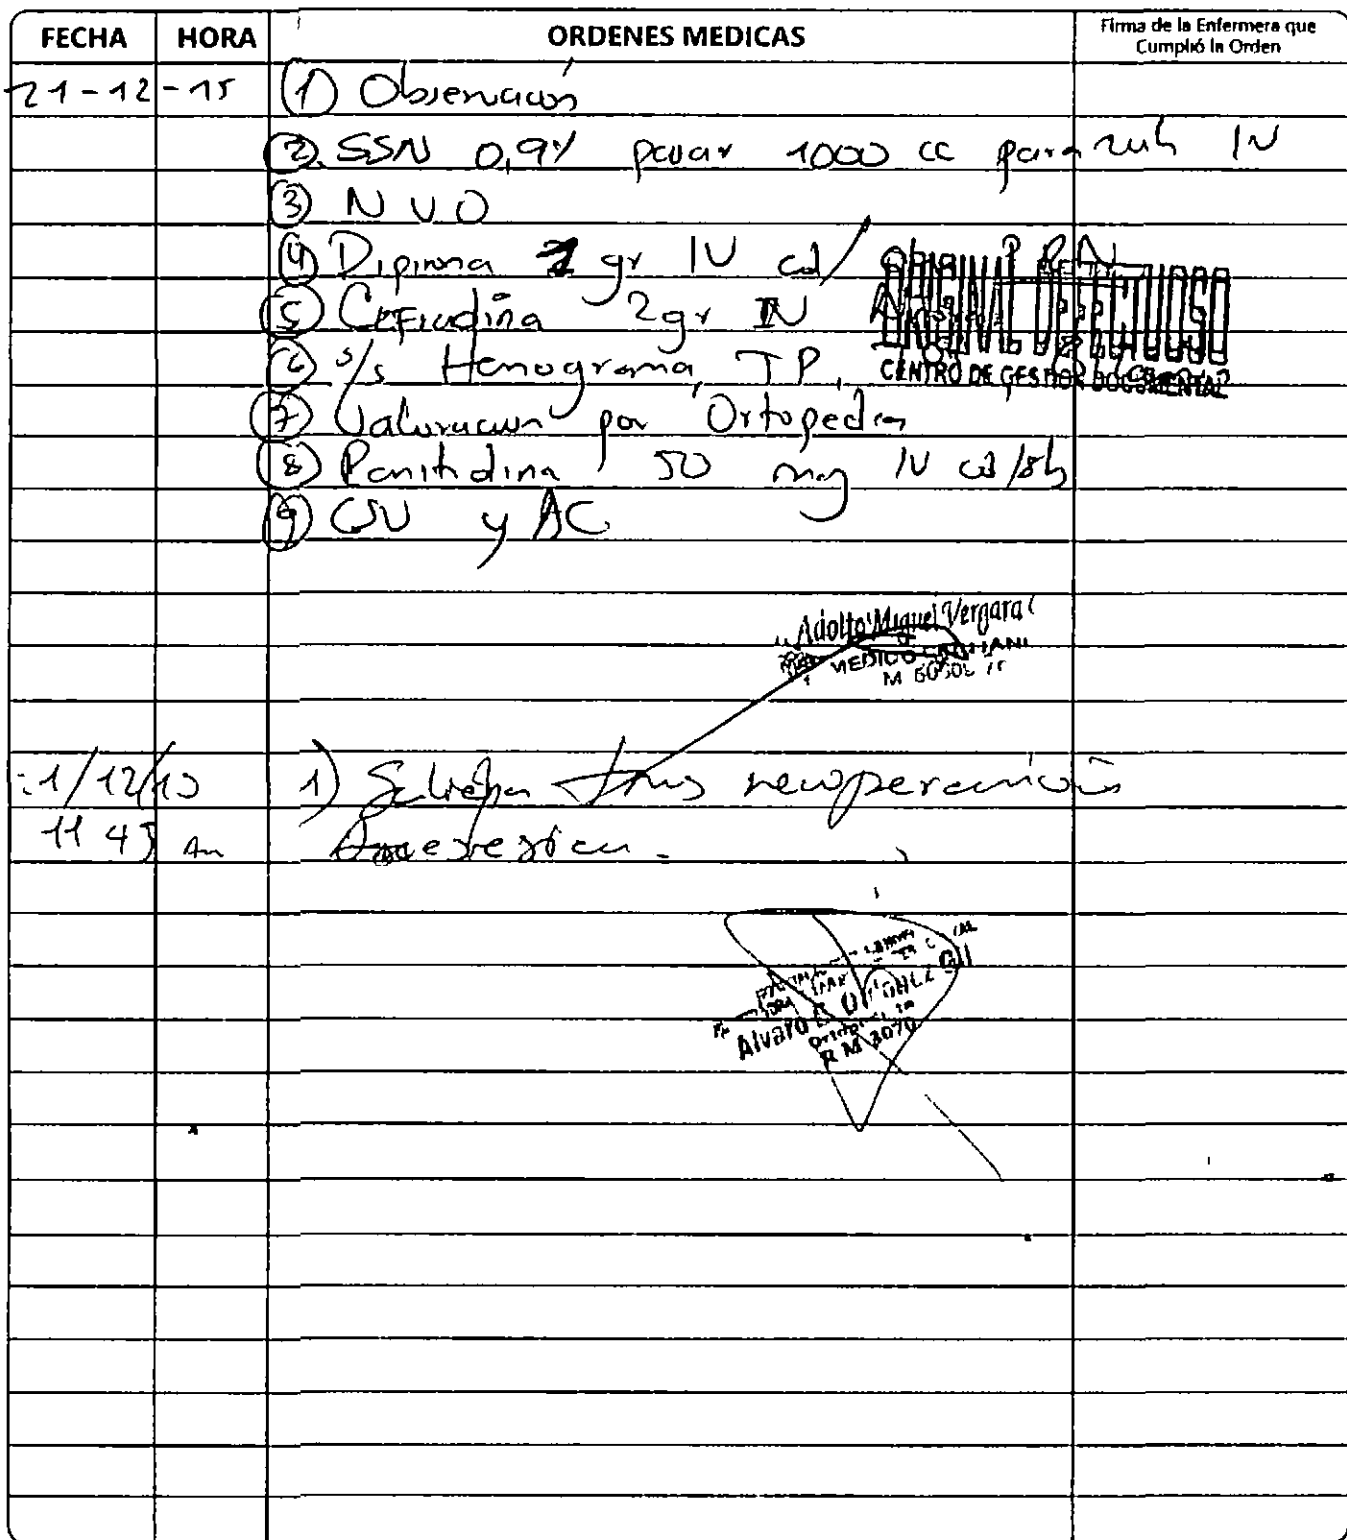 FECHA HORA ORDENES MEDICAS Firma de la Enfermera que
Cumplió la Orden
21-12-15 (1) Observación
(2) SSN 0,9% pasar 1000 cc para IV
(3) N V O
(4) Dipirona gr IV cd/
(5) Cefradina 2gr IV
(6) s/s Hemograma, TP,
(7) Valoracion por Ortopedia
(8) Ranitidina 50 mg IV cd/8h
(9) CSV y AC
ORIGINAL DEFECTUOSO
CENTRO DE GESTION DOCUMENTAL
Adolfo Miguel Vergara
MEDICO
1) tras recuperación
11 43 Am Anestesica.
Alvaro
R M 3070